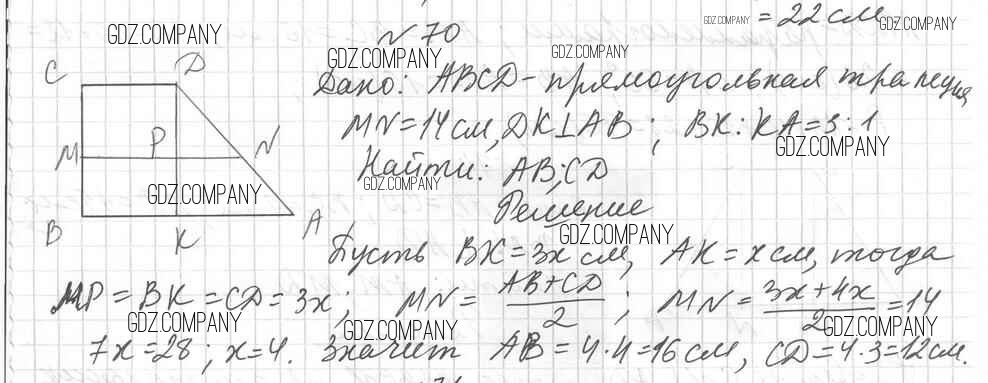 = 22 см
GDZ.COMPANY
GDZ.COMPANY
GDZ.COMPANY
№ 70
GDZ.COMPANY
GDZ.COMPANY
C D
Дано: ABCD - прямоугольная трапеция
MN = 14 см, DK ⊥ AB ; BK : KA = 3 : 1
GDZ.COMPANY
M P N
Найти: AB; CD
GDZ.COMPANY
GDZ.COMPANY
Решение
B K A
GDZ.COMPANY
Пусть BK = 3x см, AK = x см, тогда
MP = BK = CD = 3x ; MN = AB + CD / 2 ; MN = 3x + 4x / 2 = 14
GDZ.COMPANY
GDZ.COMPANY
GDZ.COMPANY
7x = 28 ; x = 4. Значит AB = 4 · 4 = 16 см, CD = 4 · 3 = 12 см.